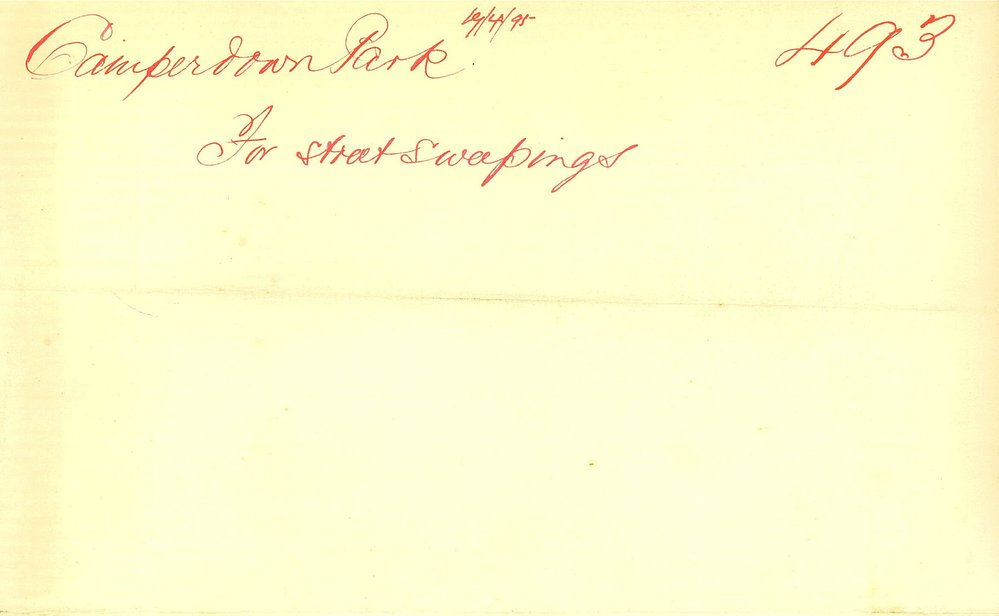 Camperdown Park 19/4/95 493
For street sweepings